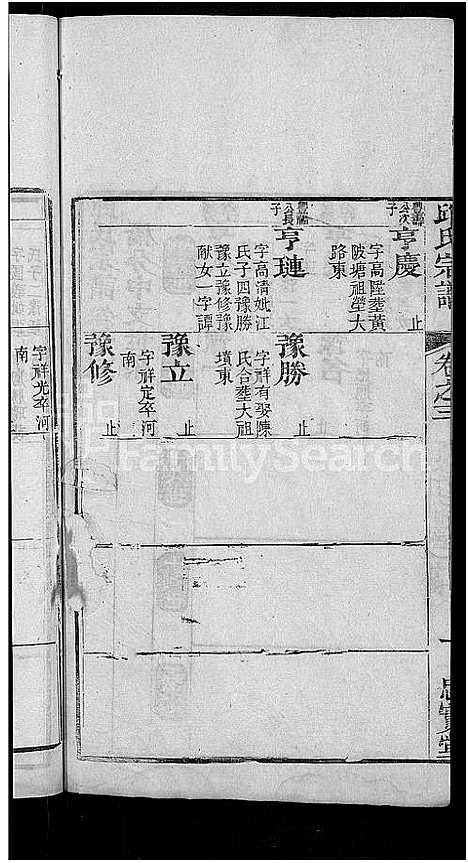 邱氏宗譜
卷之三
忠實堂
公次
子
亨慶
字高陞葬黃
陂塘祖塋大
路東
止
公長
子
亨璉
字高清妣江
氏子四豫勝
豫立豫修豫
猷女一字譚
豫勝
字祥有娶陳
氏合葬大祖
墳東
止
豫立
字祥定卒河
南
止
豫修
止
字祥光卒河
南
FamilySearch